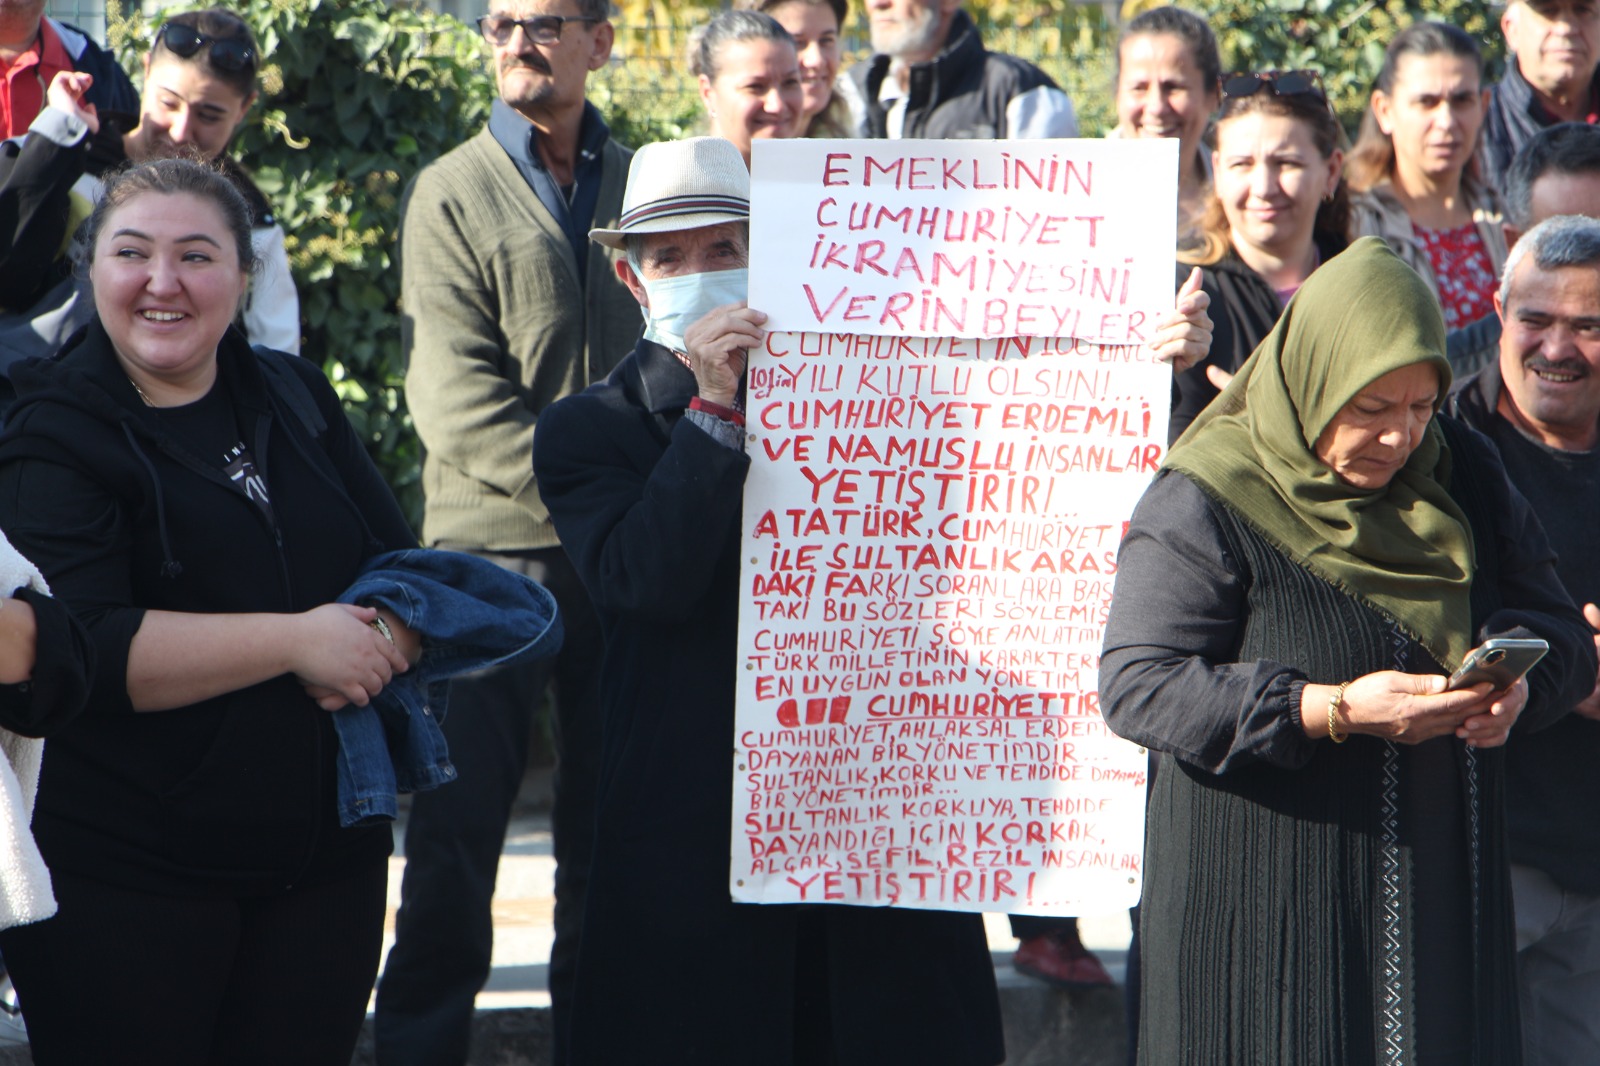 EMEKLİNİN
CUMHURİYET
İKRAMİYESİNİ
VERİN BEYLER
CUMHURİYETİN 100ÜNCÜ
101in YILI KUTLU OLSUN!...
CUMHURİYET ERDEMLİ
VE NAMUSLU İNSANLAR
YETİŞTİRİR!...
ATATÜRK, CUMHURİYET
İLE SULTANLIK ARAS
DAKİ FARKI SORANLARA BAŞ
TAKİ BU SÖZLERİ SÖYLEMİŞ
CUMHURİYETİ ŞÖYLE ANLATMI
TÜRK MİLLETİNİN KARAKTERİ
EN UYGUN OLAN YÖNETİM
CUMHURİYETTİR
CUMHURİYET, AHLAKSAL ERDEM
DAYANAN BİR YÖNETİMDİR...
SULTANLIK, KORKU VE TEHDİDE DAYANAN
BİR YÖNETİMDİR...
SULTANLIK KORKUYA, TEHDİDE
DAYANDIĞI İÇİN KORKAK,
ALÇAK, SEFİL, REZİL İNSANLAR
YETİŞTİRİR!....